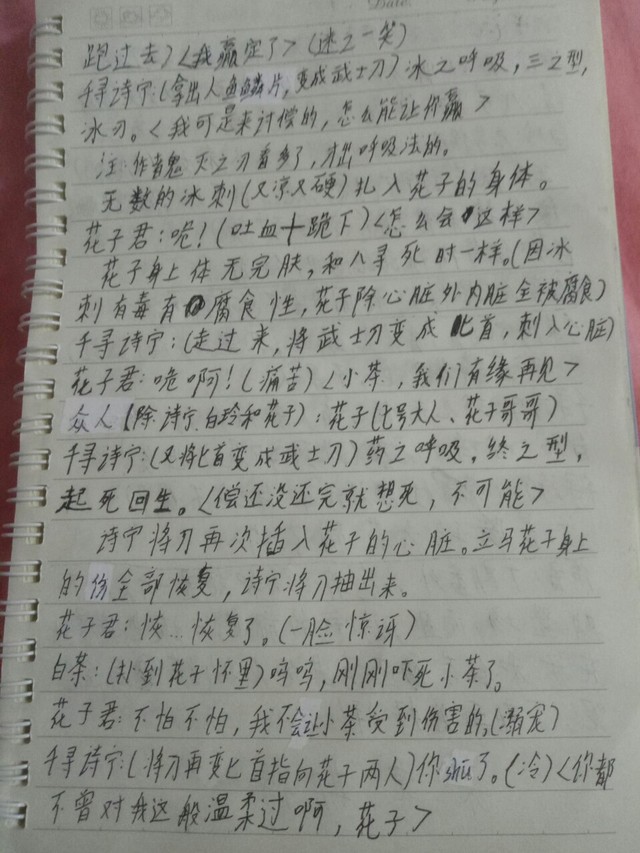 跑过去)<我赢定了>(迷之一笑)
千寻诗宁:(拿出人鱼鳞片,变成武士刀)冰之呼吸,三之型,
冰刃。<我可是来讨偿的,怎么能让你赢>
注:作者鬼灭之刃看多了,才出呼吸法的。
无数的冰刺(又凉又硬)扎入花子的身体。
花子君:唔!(吐血+跪下)<怎么会这样>
花子身上体无完肤,和八寻死时一样。(因冰
刺有毒有腐食性,花子除心脏外内脏全被腐食)
千寻诗宁:(走过来,将武士刀变成匕首,刺入心脏)
花子君:唔啊!(痛苦)<小茶,我们有缘再见>
众人(除诗宁、白玲和花子):花子(七号大人、花子哥哥)
千寻诗宁:(又将匕首变成武士刀)药之呼吸,终之型,
起死回生。<偿还没还完就想死,不可能>
诗宁将刀再次插入花子的心脏。立马花子身上
的伤全部恢复,诗宁将刀抽出来。
花子君:恢...恢复了。(一脸惊讶)
白茶:(扑到花子怀里)呜呜,刚刚吓死小茶了。
花子君:不怕不怕,我不会让小茶受到伤害的。(溺宠)
千寻诗宁:(将刀再变匕首指向花子两人)你了。(冷)<你都
不曾对我这般温柔过啊,花子>
Date